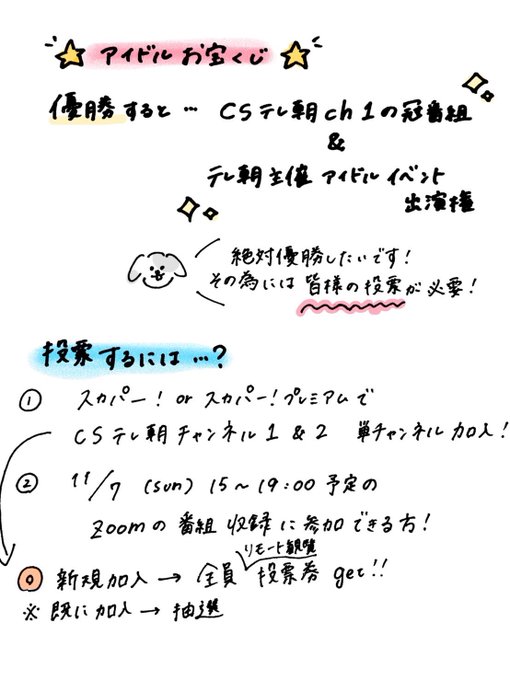 アイドルお宝くじ
優勝すると… CSテレ朝ch1の冠番組
&
テレ朝主催アイドルイベント
出演権
絶対優勝したいです!
その為には皆様の投票が必要!
投票するには…?
① スカパー! or スカパー!プレミアムで
CSテレ朝チャンネル1&2 単チャンネル加入!
② 11/7 (sun) 15~19:00予定の
zoomの番組収録に参加できる方!
リモート観覧
◎ 新規加入→全員 投票券get!!
※既に加入→抽選